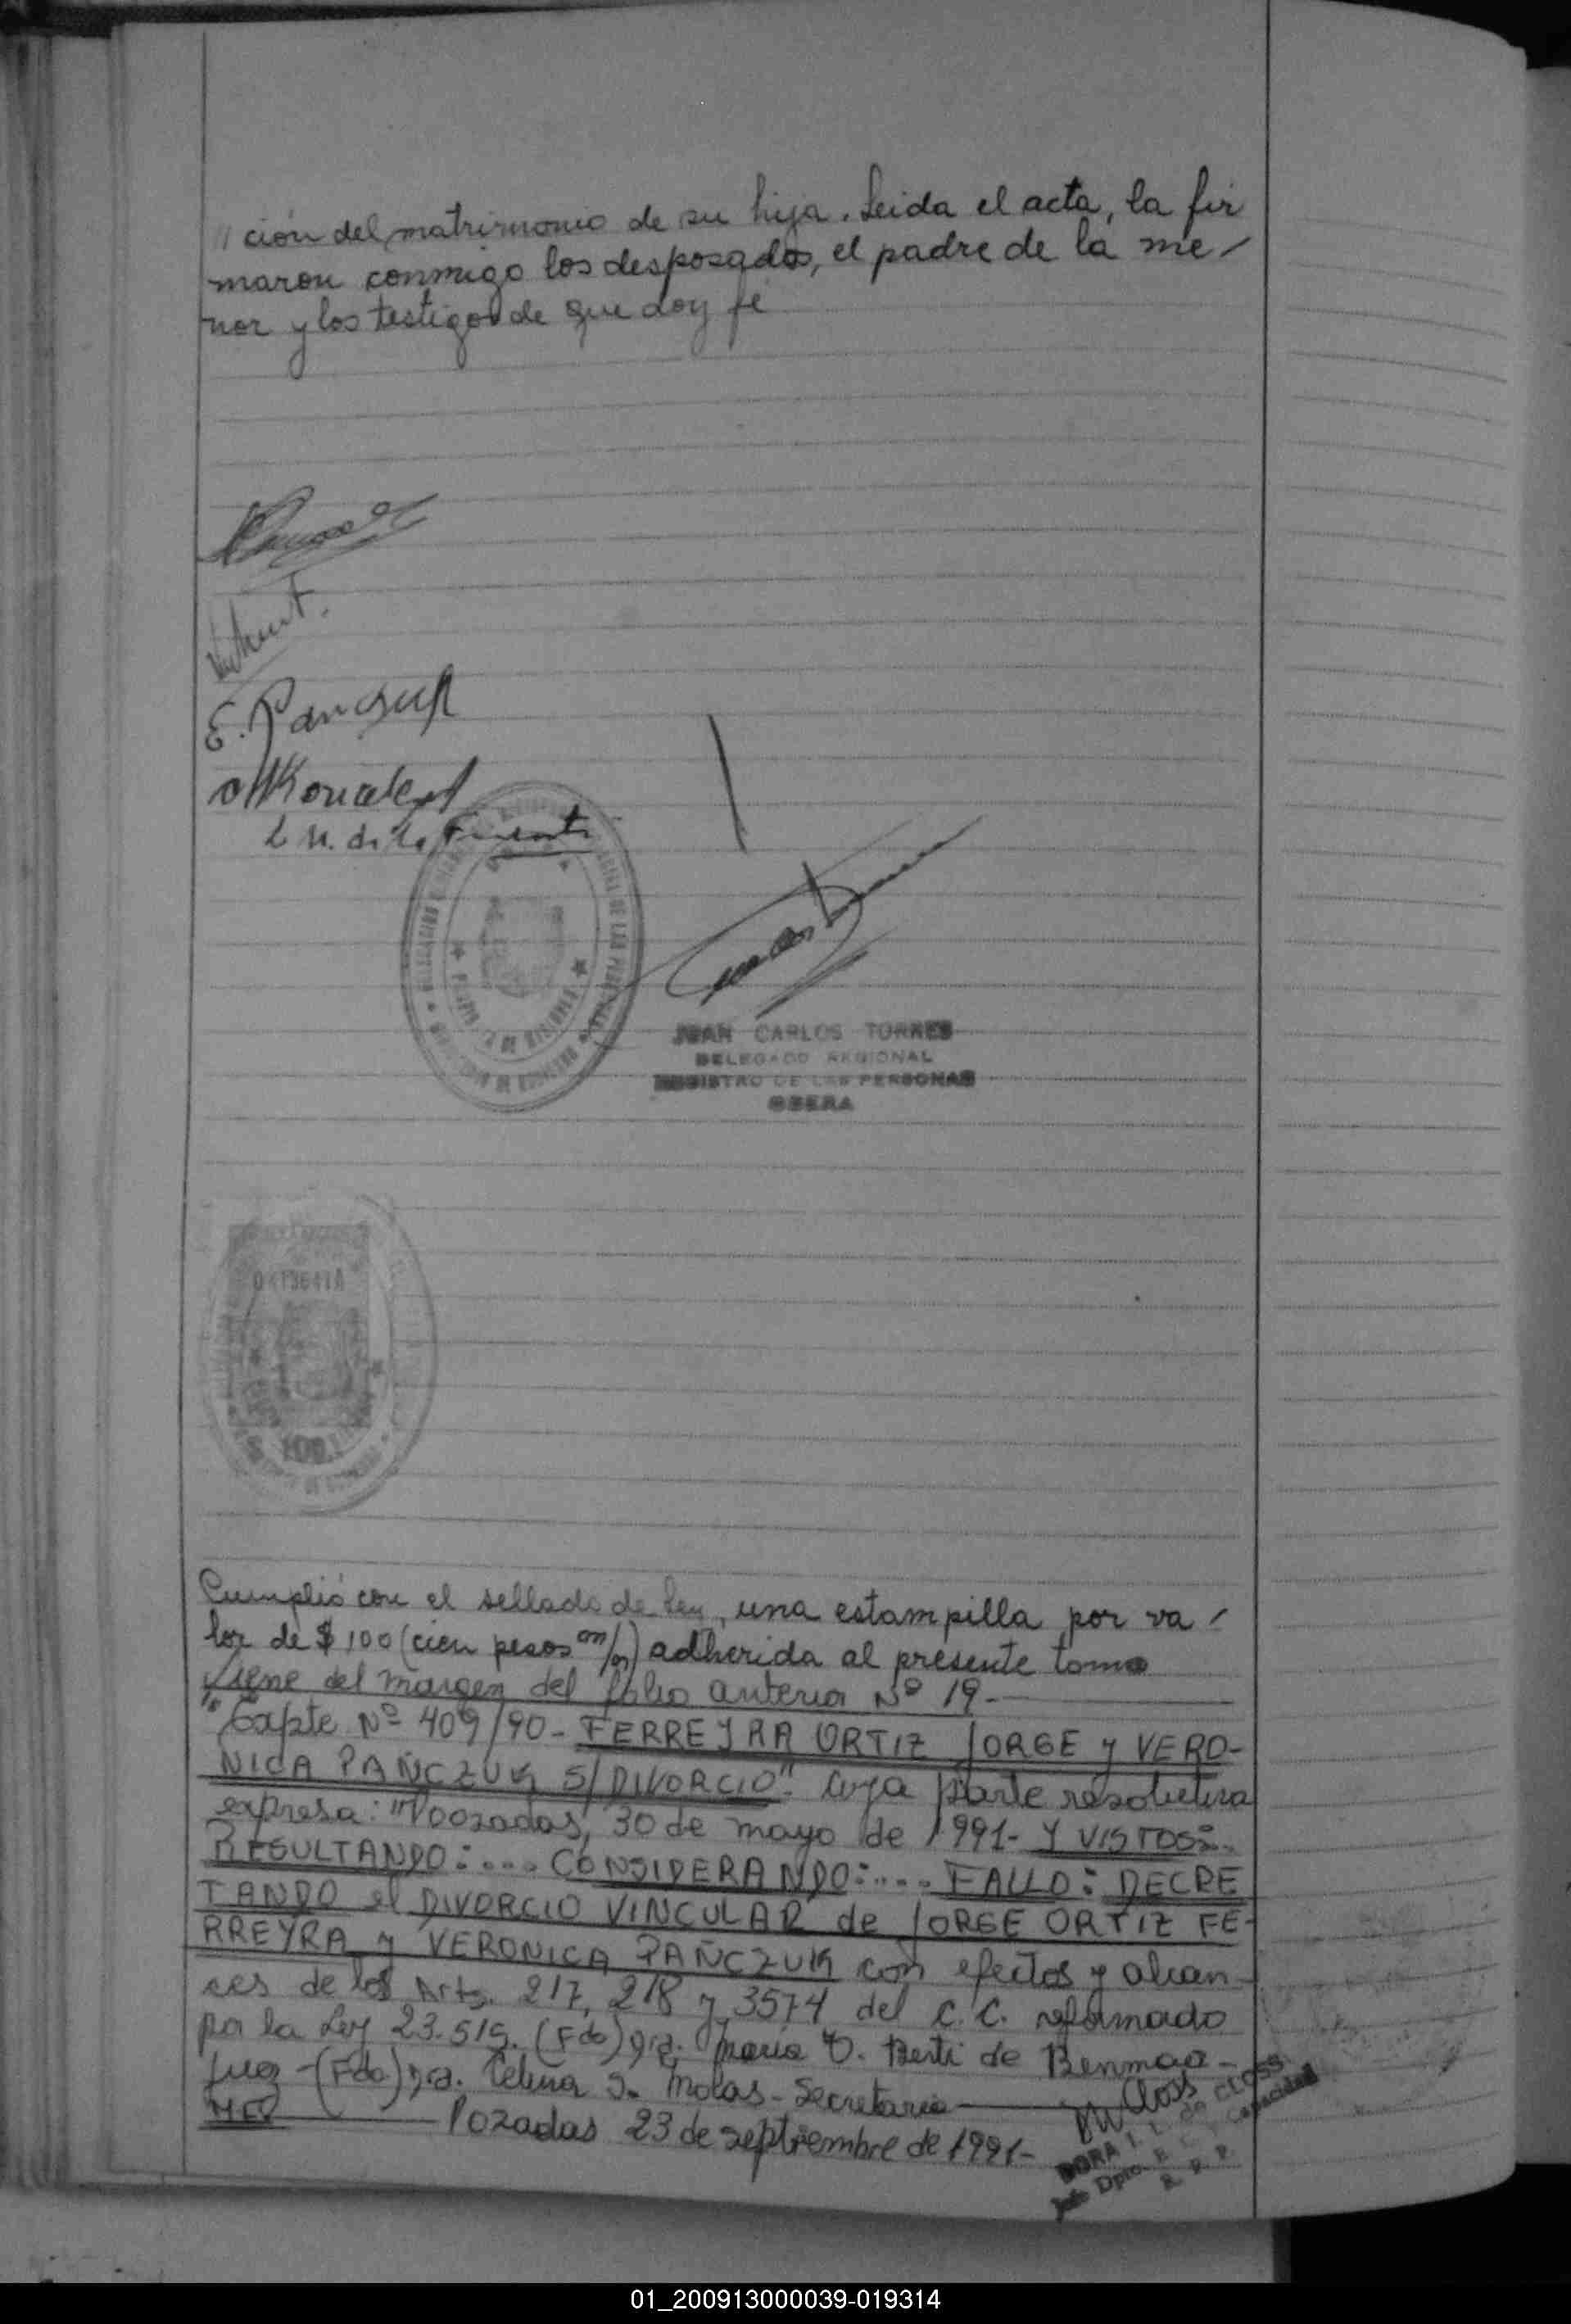 // ción del matrimonio de su hija. Leida el acta, la fir
maron conmigo los desposados, el padre de la me/
nor y los testigos de que doy fé
E. Panczuk
L N. de la Fuente
JUAN CARLOS TORRES
DELEGADO REGIONAL
REGISTRO DE LAS PERSONAS
OBERA
0413641A
$ 100
Cumplió con el sellado de ley, una estampilla por va/
lor de $ 100 (cien pesos m/n) adherida al presente tomo
Viene del margen del folio anterior Nº 19.-
"Expte Nº 409/90- FERREYRA ORTIZ JORGE y VERO-
NICA PAÑCZUK S/DIVORCIO". Cuya parte resolutiva
expresa: "Pozadas, 30 de mayo de 1991- Y VISTOS:..
RESULTANDO:.... CONSIDERANDO:.... FALLO: DECRE
TANDO el DIVORCIO VINCULAR de JORGE ORTIZ FE-
RREYRA y VERONICA PAÑCZUK con efectos y alcan-
ces de los Arts. 217, 218 y 3574 del C.C. reformado
por la Ley 23.515. (Fdo) Dra. María D. Berti de Benmaa-
Juez -(Fdo) Dra. Celina S. Molas - Secretaria
Pozadas 23 de septiembre de 1991-
M Closs
DORA de CLOSS
Jefe Dpto. Capacidad
R. P. P.
01_200913000039-019314